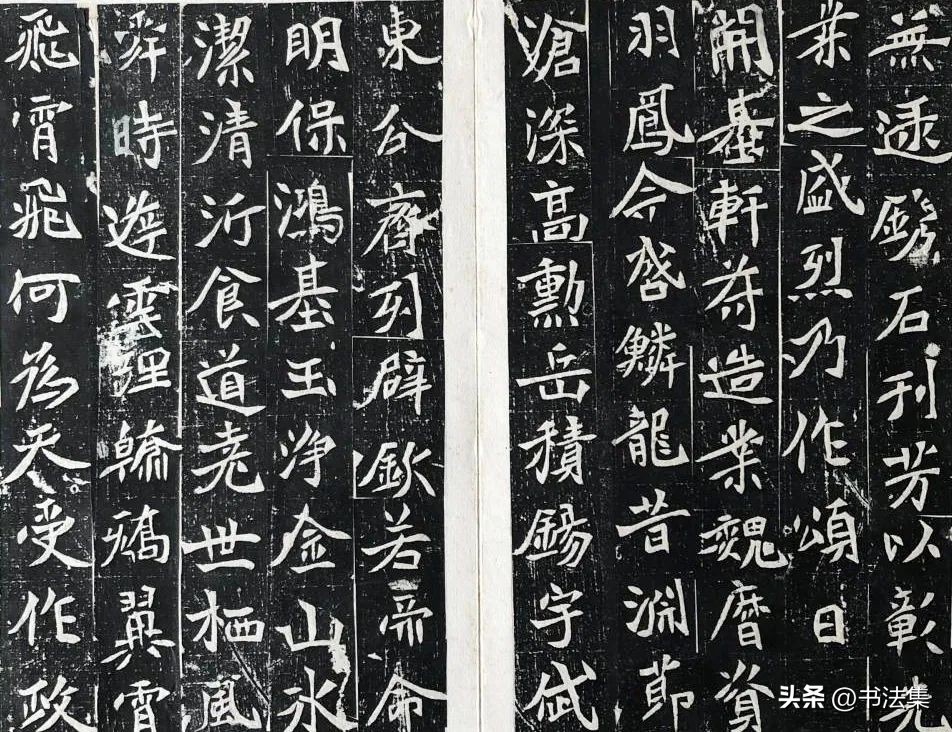 無逺鐫石刊芳以彰先
業之盛烈乃作頌曰
開基軒符造業魏曆資
羽鳳今啓鱗龍昔淵節
滄深高勲岳積錫宇岱
東分齊列辟欽若帝命
明保鴻基玉浄金山氷
潔清沂食道堯世栖風
舜時遊雲理翰矯翼霄
飛霄飛何為天受作政
头条 @书法集